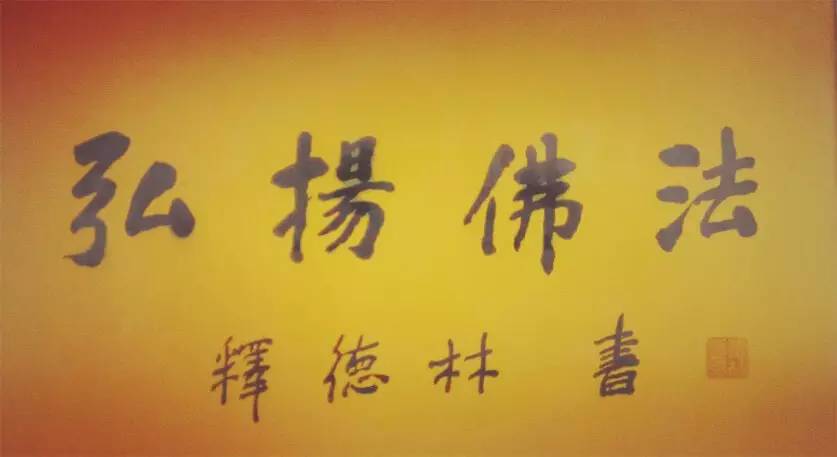 弘揚佛法
釋德林書